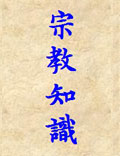 宗教知識